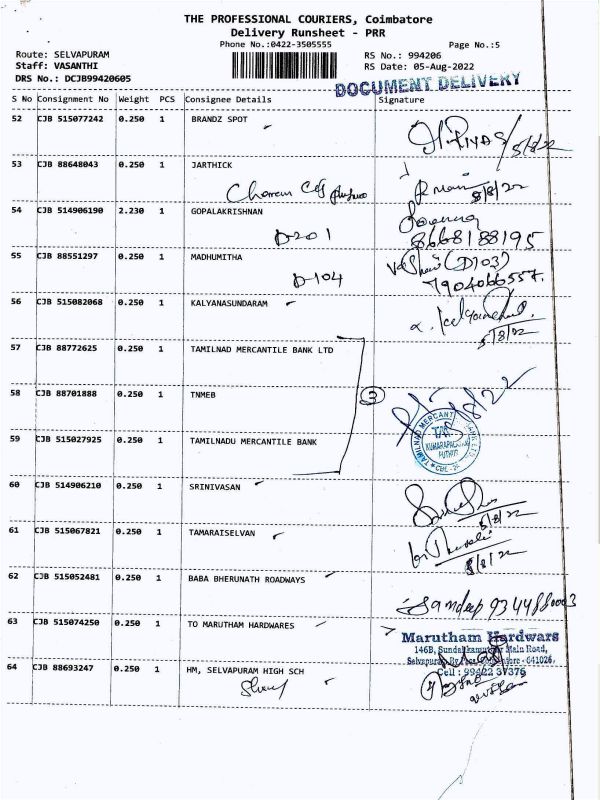 THE PROFESSIONAL COURIERS, Coimbatore
Delivery Runsheet - PRR
Phone No.:0422-3505555
Page No.:5
Route: SELVAPURAM
RS No.: 994206
Staff: VASANTHI
RS Date: 05-Aug-2022
DRS No.: DCJB99420605
DOCUMENT DELIVERY
S No Consignment No Weight PCS Consignee Details Signature
52 CJB 515077242 0.250 1 BRANDZ SPOT
5/8/22
53 CJB 88648043 0.250 1 JARTHICK
5/8/22
54 CJB 514906190 2.230 1 GOPALAKRISHNAN
D-201 8668188195
55 CJB 88551297 0.250 1 MADHUMITHA
(D103)
D-104 7904066557.
56 CJB 515082068 0.250 1 KALYANASUNDARAM
5/8/22
57 CJB 88772625 0.250 1 TAMILNAD MERCANTILE BANK LTD
58 CJB 88701888 0.250 1 TNMEB
3
59 CJB 515027925 0.250 1 TAMILNADU MERCANTILE BANK
60 CJB 514906210 0.250 1 SRINIVASAN
5/8/22
61 CJB 515067821 0.250 1 TAMARAISELVAN
5/8/22
62 CJB 515052481 0.250 1 BABA BHERUNATH ROADWAYS
Sandeep
63 CJB 515074250 0.250 1 TO MARUTHAM HARDWARES
Marutham Hardwars
146B, Main Road,
641026.
Cell : 99422 37376
64 CJB 88693247 0.250 1 HM, SELVAPURAM HIGH SCH